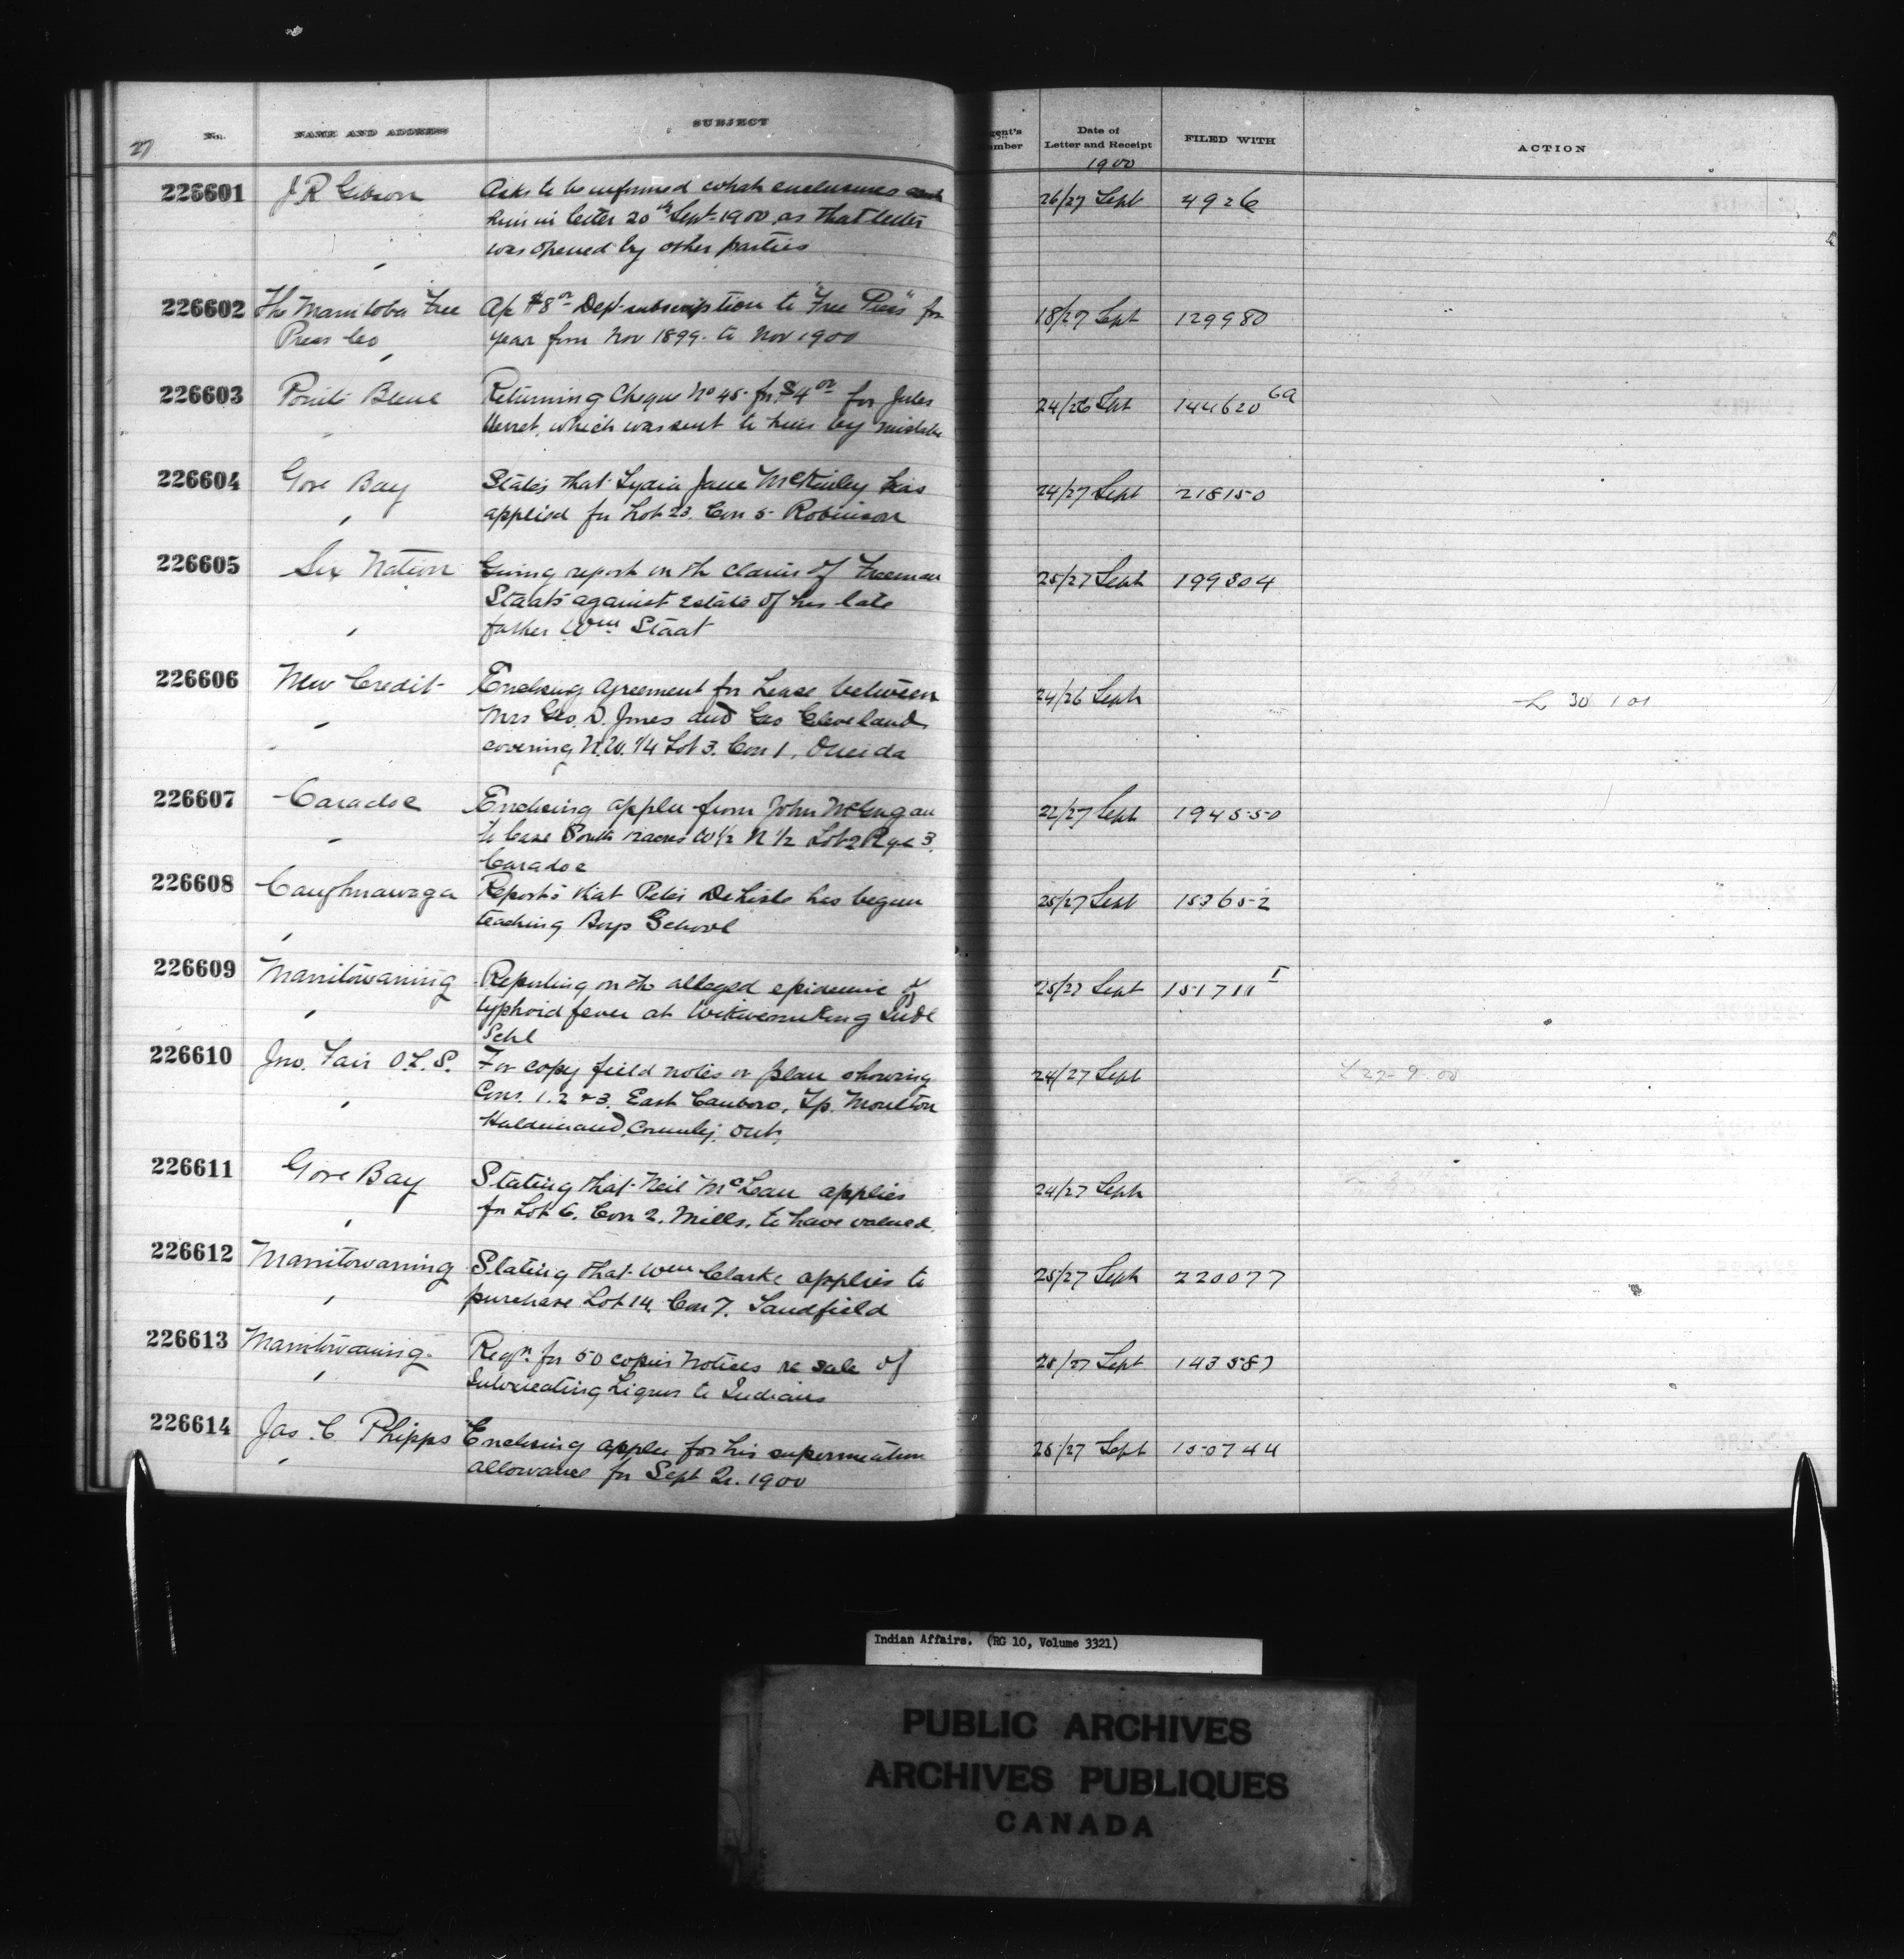 27
No. NAME AND ADDRESS SUBJECT Date of Letter and Receipt FILED WITH ACTION
1900
226601 J R Gibson Asks to be informed what enclosures sent 26/27 Sept 4926
him in letter 20th Sept 1900 as that letter
was opened by other parties
226602 The Manitoba Free Ap $8 00 Dept subscription to "Free Press" for 18/27 Sept 129980
Press Co year from Nov 1899 to Nov 1900
226603 Pointe Bleue Returning Cheque No 45 for $4 00 for Jules 24/26 Sept 144620 6a
which was sent to him by mistake
226604 Gore Bay States that Lydia Jane McKinley has 24/27 Sept 218150
applied for Lot 23. Con 5 Robinson
226605 Six Nation Giving report on the claim of Freeman 25/27 Sept 199304
Staats against estate of his late
father Wm Staat
226606 New Credit Enclosing Agreement for Lease between 24/26 Sept L 30 1 01
Mrs Geo. D. Jones and Geo Cleveland
covering N.W. 1/4 Lot 3. Con 1. Oneida
226607 Caradoc Enclosing applcn from John McGugan 22/27 Sept 194550
to lease South 12 acres W 1/2 N 1/2 Lot 2 Rge 3.
Caradoc
226608 Caughnawaga Reports that Peter DeLisle has begun 25/27 Sept 153652
teaching Boys School
226609 Manitowaning Reporting on the alleged epidemic of 25/27 Sept 151711 I
typhoid fever at Wikwemikong Indl
Schl
226610 Jno. Fair O.L.S. For copy field notes or plan showing 24/27 Sept L 27-9-00
Cons. 1. 2 & 3. East Canboro, Tp. Moulton
Haldimand, County, Ont,
226611 Gore Bay Stating that Neil McLean applies 24/27 Sept
for Lot 6. Con 2. Mills. to have valued.
226612 Manitowaning Stating that Wm Clarke applies to 25/27 Sept 220077
purchase Lot 14. Con 7. Sandfield
226613 Manitowaning Reqn. for 50 copies notices re sale of 25/27 Sept 143587
Intoxicating Liquor to Indians
226614 Jas. C Phipps Enclosing applcn for his superannuation 25/27 Sept 150744
allowance for Sept Qr. 1900
Indian Affairs. (RG 10, Volume 3321)
PUBLIC ARCHIVES
ARCHIVES PUBLIQUES
CANADA